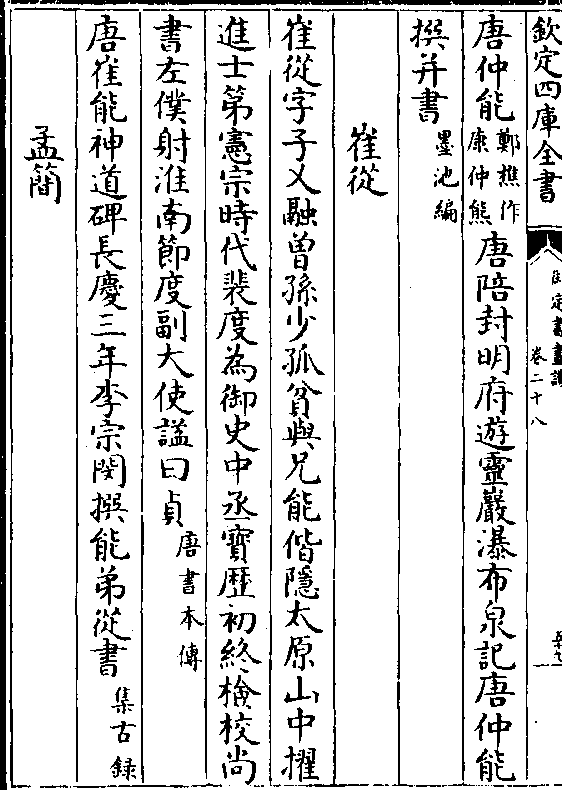 欽定四庫全書
御定書畫譜
卷二十八
唐仲能鄭樵作康仲熊唐陪封明府遊靈巖瀑布泉記唐仲能
撰并書墨池編
崔從
崔從字子乂融曾孫少孤貧與兄能偕隱太原山中擢
進士第憲宗時代裴度為御史中丞寶歷初終檢校尚
書左僕射淮南節度副大使諡曰貞唐書本傳
唐崔能神道碑長慶三年李宗閔撰能弟從書集古錄
孟簡